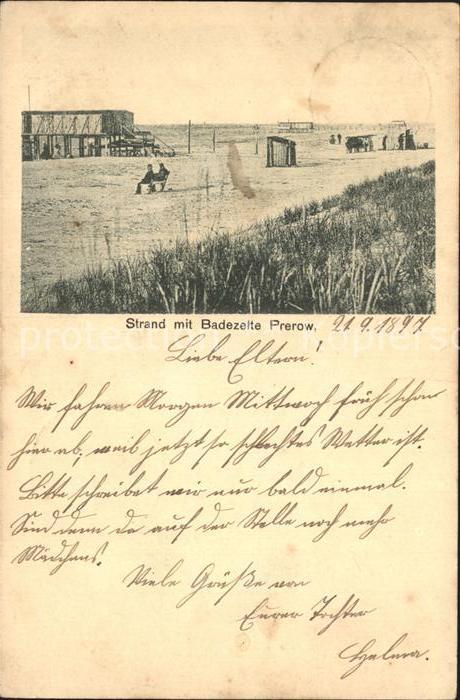 Strand mit Badezelte Prerow, 21.9.1897.
Liebe Eltern!
Wir fahren Morgen Mittwoch früh schon
hier ab, weil jetzt so schlechtes Wetter ist.
Bitte schreibet mir nur bald einmal.
Sind denn da auf der Stelle noch mehr
Mädchens.
Viele Grüße von
Eurer Tochter
Helena.